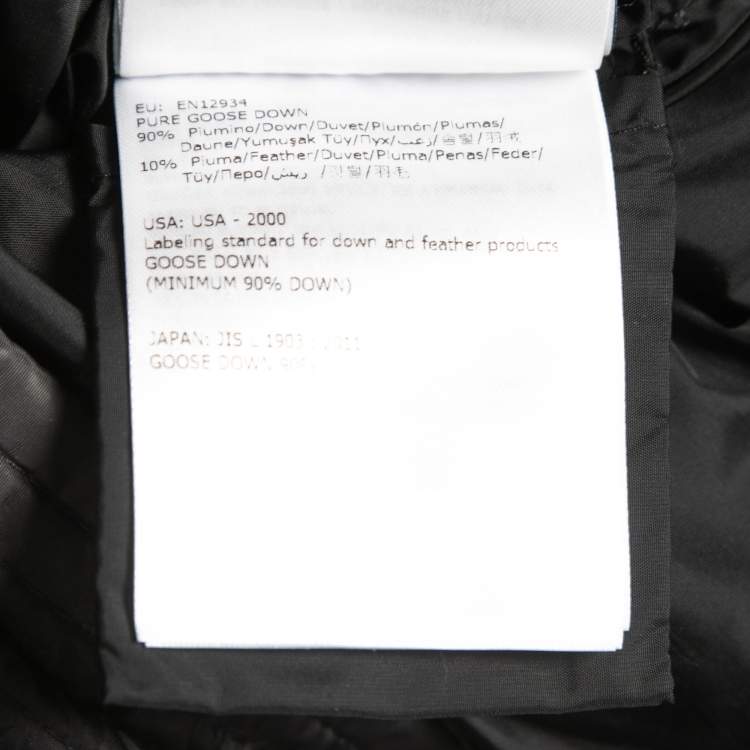 EU: EN12934
PURE GOOSE DOWN
90% Piumino/Down/Duvet/Plumón/Plumas/
Daune/Yumuşak Tüy/Пух/زغب/羽毛
10% Piuma/Feather/Duvet/Pluma/Penas/Feder/
Tüy/Перо/ريش /깃털/羽毛
USA: USA - 2000
Labeling standard for down and feather products
GOOSE DOWN
(MINIMUM 90% DOWN)
JAPAN: JIS L 1903 : 2011
GOOSE DOWN 90%